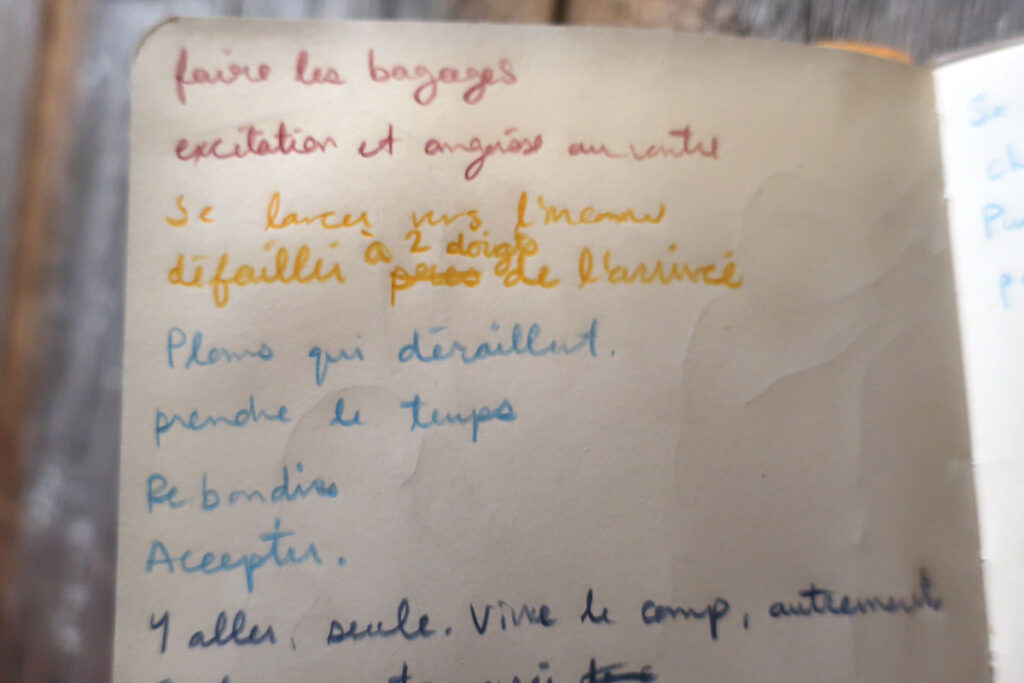 faire les bagages
excitation et angoisse au ventre
Se lancer vers l'inconnu
à 2 doigts
défaillir de l'arrivée
Plans qui déraillent.
prendre le temps
Rebondir
Accepter.
Y aller, seule. Vivre le camp, autrement